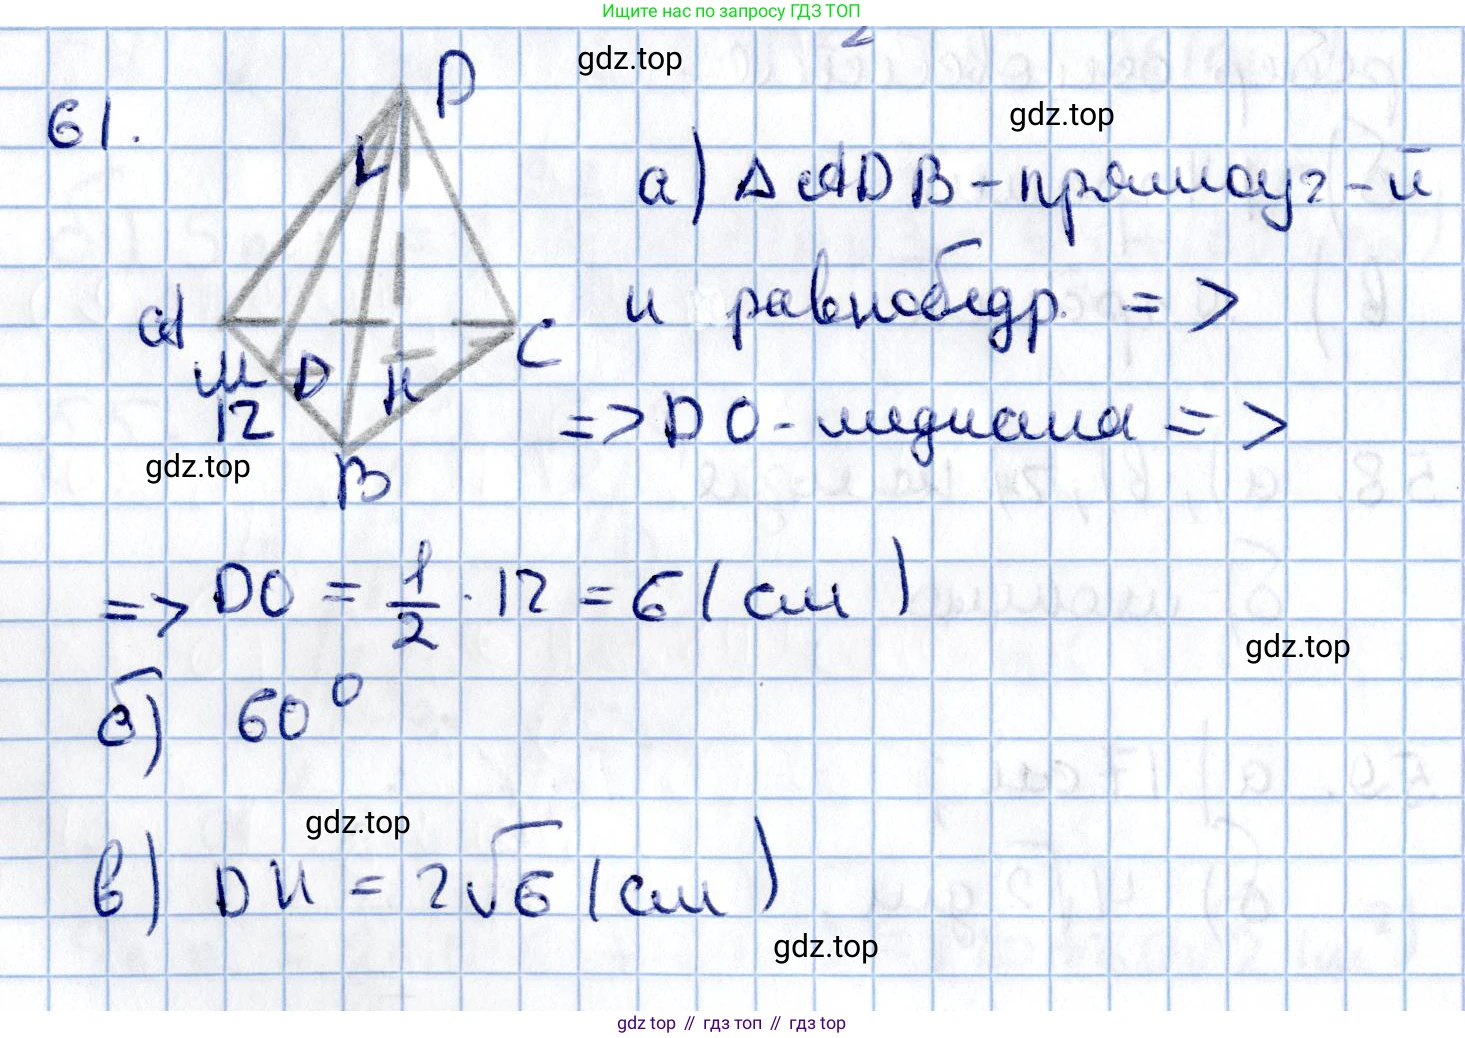 Ищите нас по запросу ГДЗ ТОП
gdz.top
61.
D
L
gdz.top
а) Δ ADB - прямоуг-й
и равнобедр. =>
A
C
M
D
H
12
=> DO - медиана =>
gdz.top
B
=> DO = 1/2 · 12 = 6 (см)
gdz.top
б) 60°
gdz.top
в) DH = 2√6 (см)
gdz.top
gdz top // гдз топ // гдз top